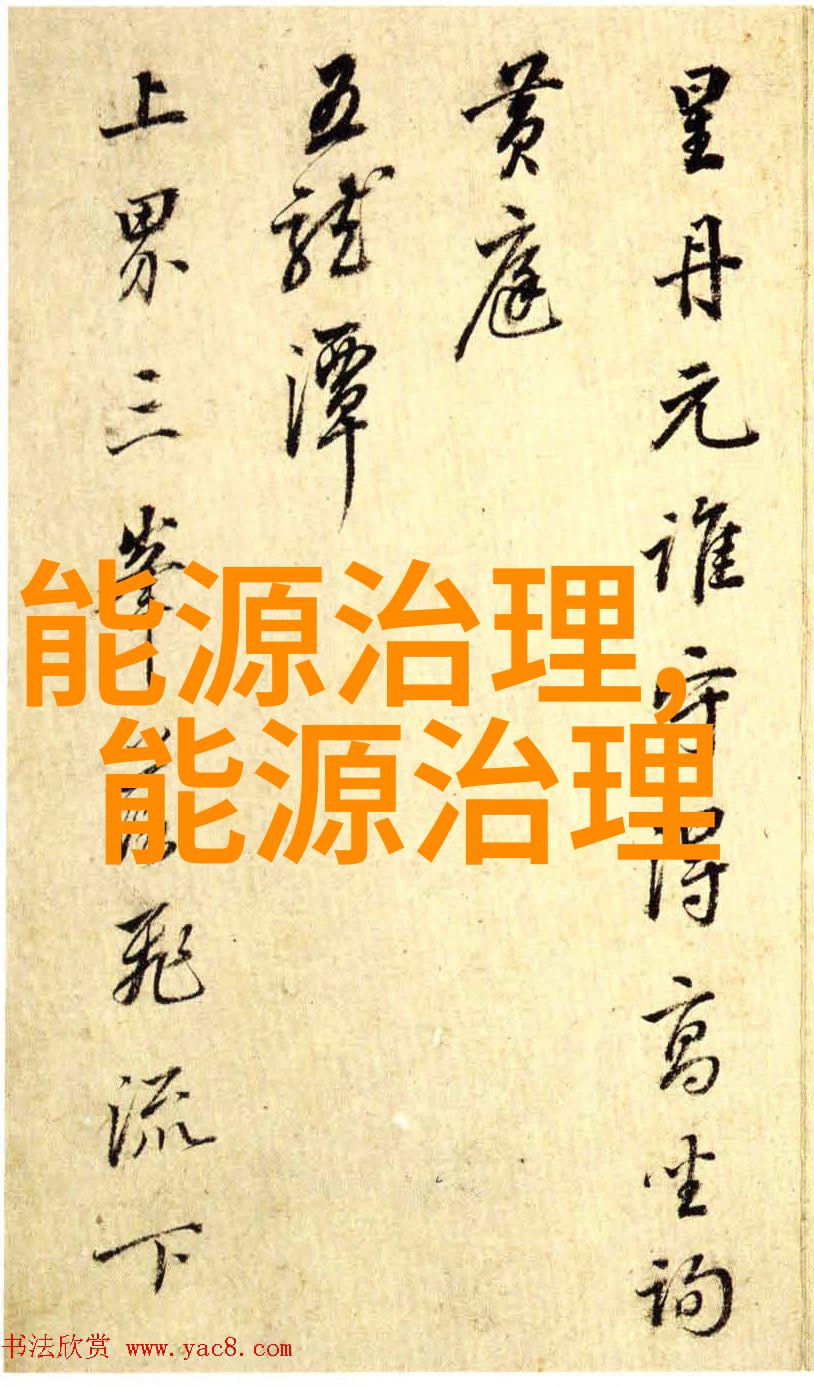 星丹元谁守得高坐詢
黄庭
五龍潭
上界三峯飛流下
能源治理,
能源治理
书法欣赏 www.yac8.com